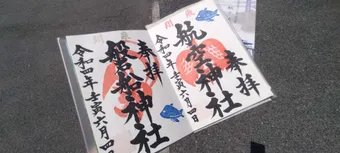 奉拝
航空神社
令和四年壬寅六月四日
奉拝
磐船神社
令和四年壬寅六月四日